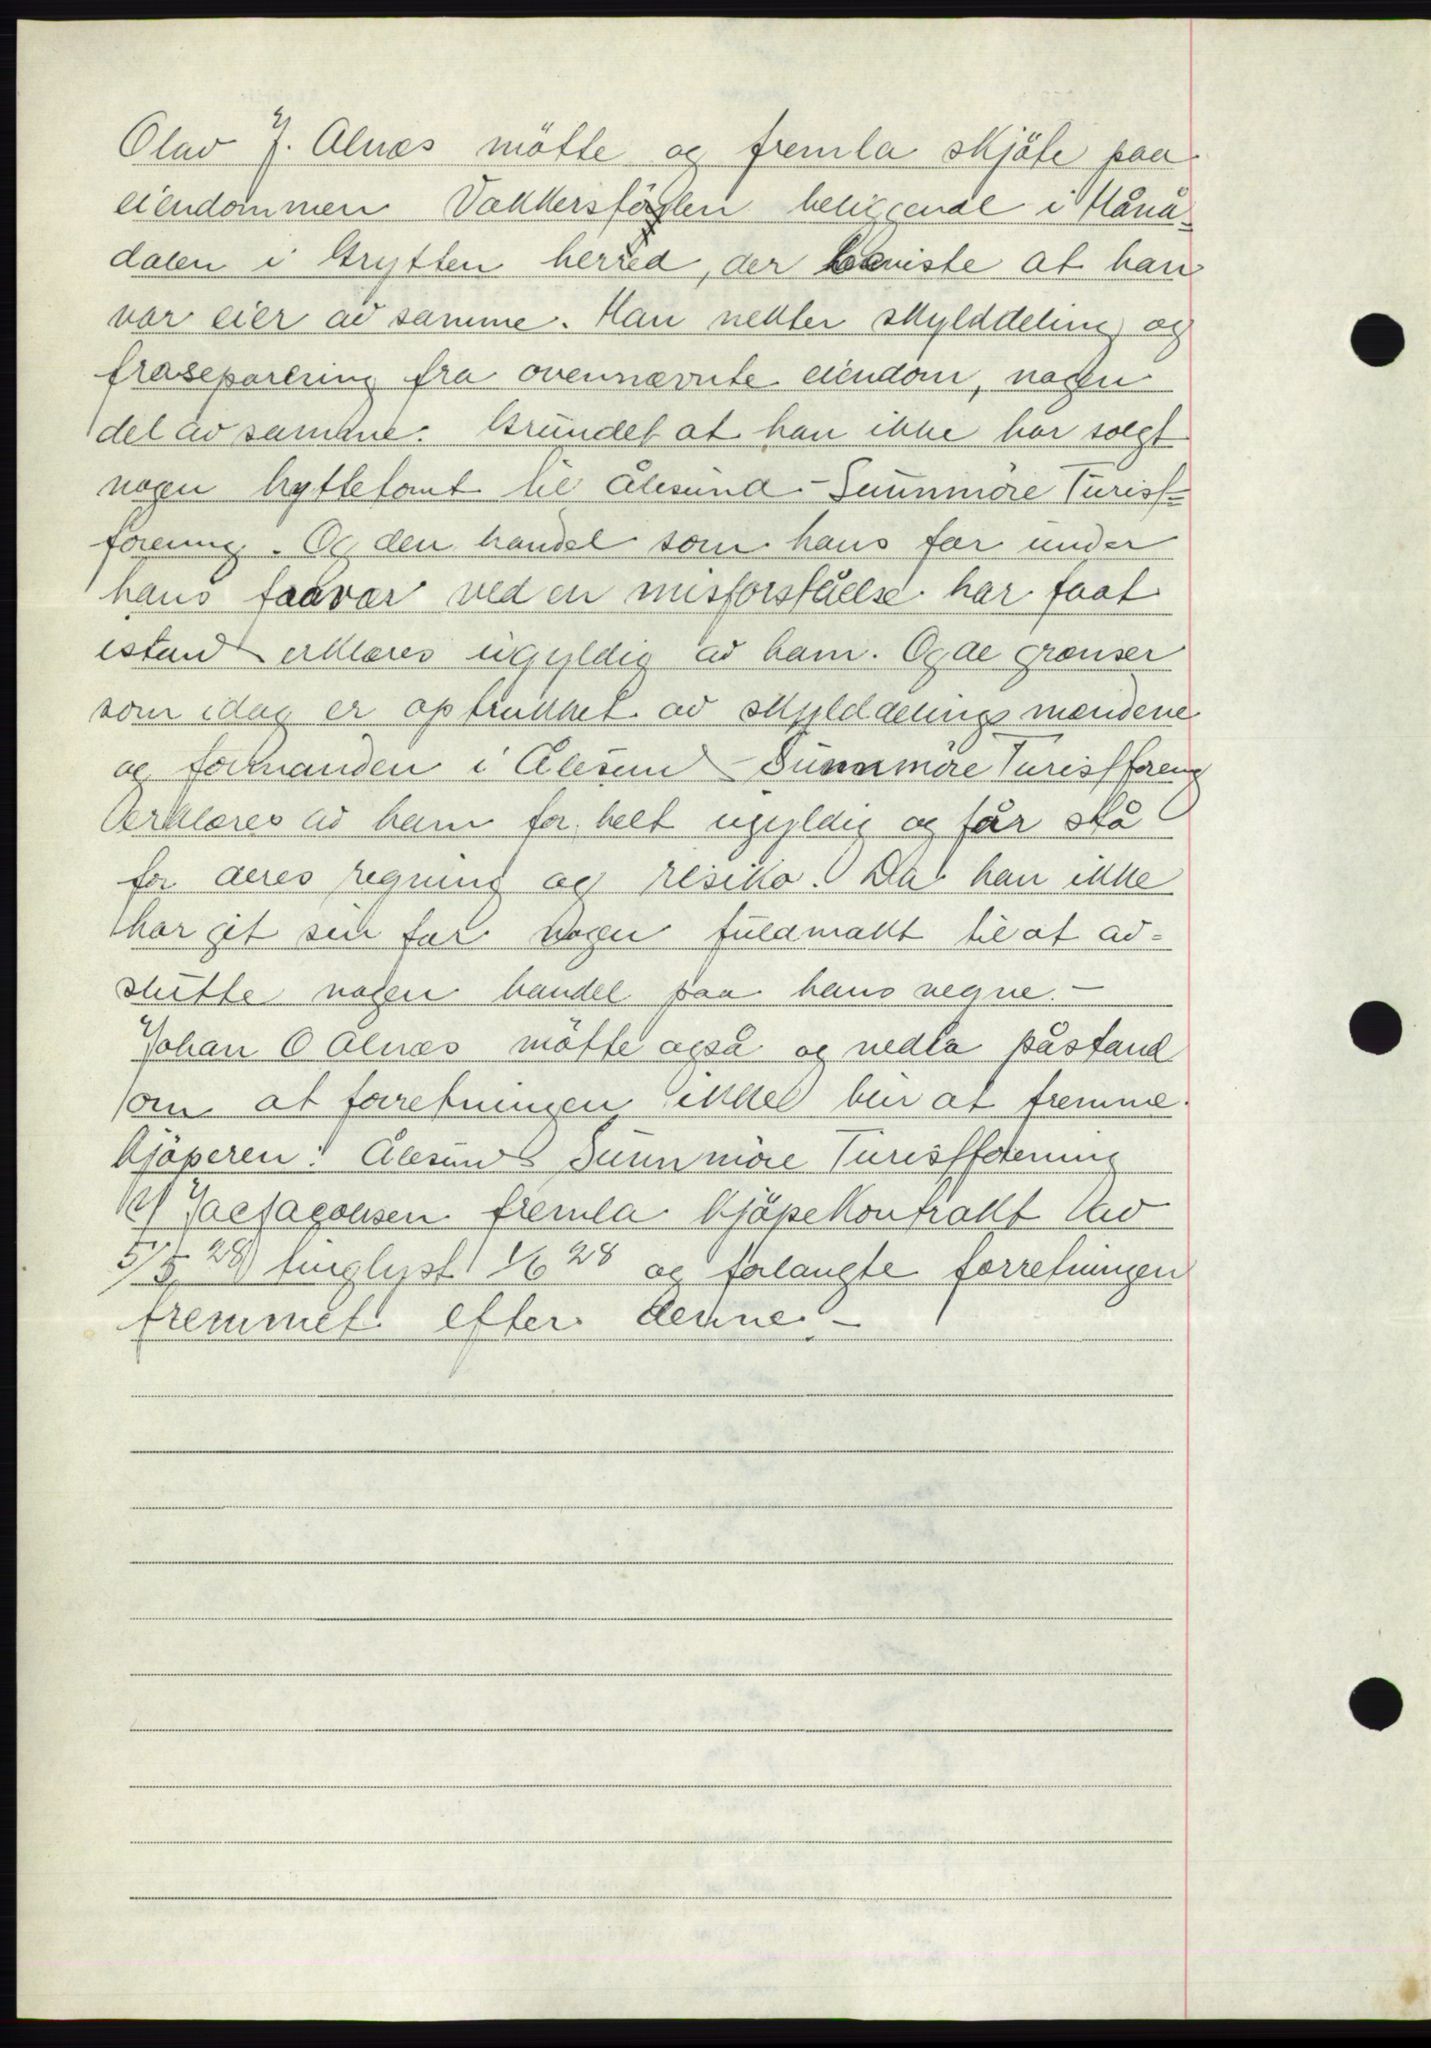 Olav J. Alnæs mötte og fremla skjöte paa
eiendommen Vakkersföylen beliggende i Månå=
dalen i Grytten herred, der beviste at han
var eier av samme. Han nekter skylddeling og
fraseparering fra ovennævnte eiendom, nogen
del av samme. Grundet at han ikke har solgt
nogen hyttetomt til Ålesund-Sunnmöre Turist=
forening. Og den handel som hans far under
hans fravær ved en misforståelse har faat
istand erklæres ugyldig av ham. Og de grænser
som idag er optrukket av skylddelingsmændene
og formanden i Ålesund-Sunnmöre Turistforeng
erklæres av ham for helt ugyldig og får stå
for deres regning og risiko. Da han ikke
har git sin far nogen fuldmakt til at av=
slutte nogen handel paa hans vegne. -
Johan O Alnæs mötte også og nedla påstand
om at forretningen ikke blir at fremme.
Kjöperen: Ålesund Sunnmöre Turistforening
v/ Jac Jacobsen fremla Kjöpekontrakt av
5/5 28 tinglyst 1/6 28 og forlangte forretningen
fremmet efter denne. -